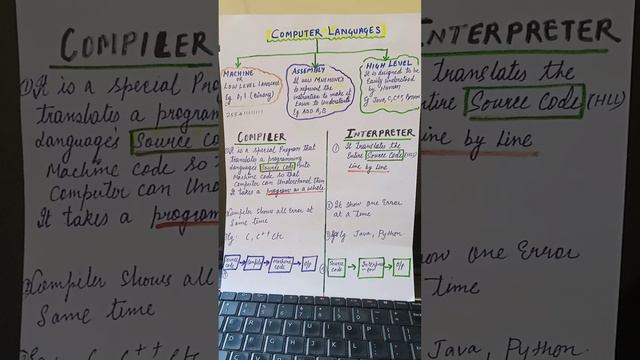 COMPUTER LANGUAGES
MACHINE
OR
LOW LEVEL LANGUAGE
Eg. 0,1 (Binary)
255 → 11111111
ASSEMBLY
It uses MNEMONICS
to represent the
instruction to make it
Easier to understand
Eg ADD A, B
HIGH LEVEL
It is designed to be
Easily understood
by Human
Eg Java, C, C++, Python
COMPILER
① It is a Special Program that
translates a programming
language's Source Code into
Machine code so that
Computer can Understand them
It takes a program as a whole
② Compiler Shows all Error at
Same time
③ Eg. C, C++ Etc
Source code → Compiler → Machine code → O/P
INTERPRETER
① It translates the
Entire Source Code (HLL)
Line by Line
② It show one Error
at a time
③ Eg Java, Python
Source code → Interpreter → O/P
COMPILER
① It is a Special Prog
translates a program
language's Source Co
Machine code so th
Computer can Und
It takes a program
② Compiler Shows all
Same time
INTERPRETER
translates the
Source Code (HLL)
Line by Line
ow one Error
time
Java, Python